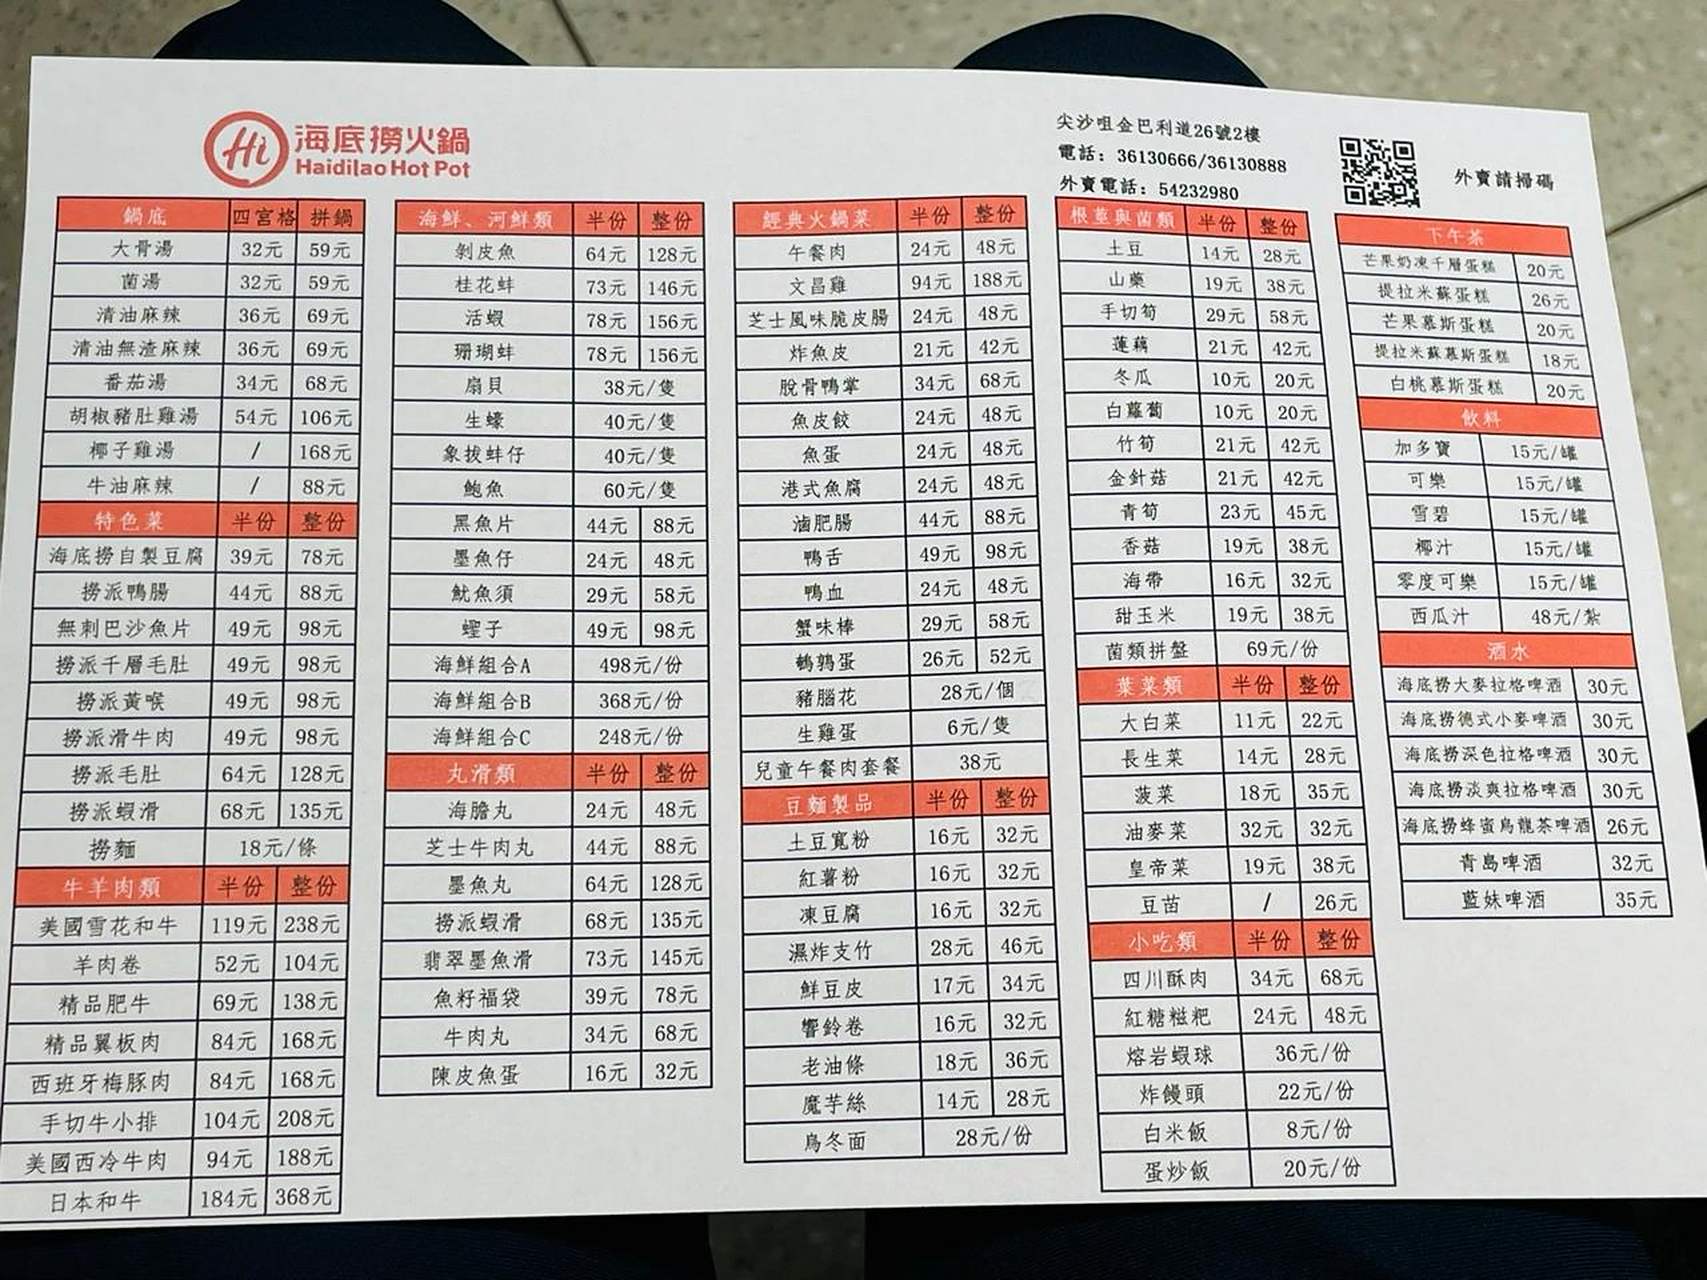 Hi 海底撈火鍋
Haidilao Hot Pot
尖沙咀金巴利道26號2樓
電話：36130666/36130888
外賣電話：54232980
外賣請掃碼
鍋底 四宮格 拼鍋
大骨湯 32元 59元
菌湯 32元 59元
清油麻辣 36元 69元
清油無渣麻辣 36元 69元
番茄湯 34元 68元
胡椒豬肚雞湯 54元 106元
椰子雞湯 / 168元
牛油麻辣 / 88元
特色菜 半份 整份
海底撈自製豆腐 39元 78元
撈派鴨腸 44元 88元
無刺巴沙魚片 49元 98元
撈派千層毛肚 49元 98元
撈派黃喉 49元 98元
撈派滑牛肉 49元 98元
撈派毛肚 64元 128元
撈派蝦滑 68元 135元
撈麵 18元/條
牛羊肉類 半份 整份
美國雪花和牛 119元 238元
羊肉卷 52元 104元
精品肥牛 69元 138元
精品翼板肉 84元 168元
西班牙梅豚肉 84元 168元
手切牛小排 104元 208元
美國西冷牛肉 94元 188元
日本和牛 184元 368元
海鮮、河鮮類 半份 整份
剝皮魚 64元 128元
桂花蚌 73元 146元
活蝦 78元 156元
珊瑚蚌 78元 156元
扇貝 38元/隻
生蠔 40元/隻
象拔蚌仔 40元/隻
鮑魚 60元/隻
黑魚片 44元 88元
墨魚仔 24元 48元
魷魚須 29元 58元
蟶子 49元 98元
海鮮組合A 498元/份
海鮮組合B 368元/份
海鮮組合C 248元/份
丸滑類 半份 整份
海膽丸 24元 48元
芝士牛肉丸 44元 88元
墨魚丸 64元 128元
撈派蝦滑 68元 135元
翡翠墨魚滑 73元 145元
魚籽福袋 39元 78元
牛肉丸 34元 68元
陳皮魚蛋 16元 32元
經典火鍋菜 半份 整份
午餐肉 24元 48元
文昌雞 94元 188元
芝士風味脆皮腸 24元 48元
炸魚皮 21元 42元
脫骨鴨掌 34元 68元
魚皮餃 24元 48元
魚蛋 24元 48元
港式魚腐 24元 48元
滷肥腸 44元 88元
鴨舌 49元 98元
鴨血 24元 48元
蟹味棒 29元 58元
鵪鶉蛋 26元 52元
豬腦花 28元/個
生雞蛋 6元/隻
兒童午餐肉套餐 38元
豆麵製品 半份 整份
土豆寬粉 16元 32元
紅薯粉 16元 32元
凍豆腐 16元 32元
濕炸支竹 28元 46元
鮮豆皮 17元 34元
響鈴卷 16元 32元
老油條 18元 36元
魔芋絲 14元 28元
烏冬面 28元/份
根莖與菌類 半份 整份
土豆 14元 28元
山藥 19元 38元
手切筍 29元 58元
蓮藕 21元 42元
冬瓜 10元 20元
白蘿蔔 10元 20元
竹筍 21元 42元
金針菇 21元 42元
青筍 23元 45元
香菇 19元 38元
海帶 16元 32元
甜玉米 19元 38元
菌類拼盤 69元/份
葉菜類 半份 整份
大白菜 11元 22元
長生菜 14元 28元
菠菜 18元 35元
油麥菜 32元 32元
皇帝菜 19元 38元
豆苗 / 26元
小吃類 半份 整份
四川酥肉 34元 68元
紅糖糍粑 24元 48元
熔岩蝦球 36元/份
炸饅頭 22元/份
白米飯 8元/份
蛋炒飯 20元/份
下午茶
芒果奶凍千層蛋糕 20元
提拉米蘇蛋糕 26元
芒果慕斯蛋糕 20元
提拉米蘇慕斯蛋糕 18元
白桃慕斯蛋糕 20元
飲料
加多寶 15元/罐
可樂 15元/罐
雪碧 15元/罐
椰汁 15元/罐
零度可樂 15元/罐
西瓜汁 48元/紮
酒水
海底撈大麥拉格啤酒 30元
海底撈德式小麥啤酒 30元
海底撈深色拉格啤酒 30元
海底撈淡爽拉格啤酒 30元
海底撈蜂蜜烏龍茶啤酒 26元
青島啤酒 32元
藍妹啤酒 35元